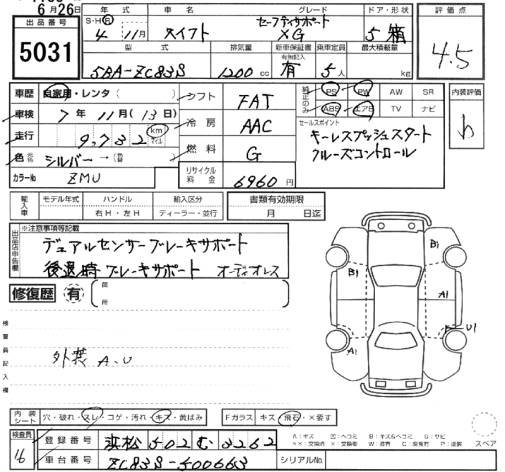 6月26日
年式 車名 グレード ドア・形状 評価点
出品番号
5031
S・H・R 4年11月 スイフト セーフティサポート XG 5 箱
4.5
型式 排気量 新車保証書 乗車定員 最大積載量
有償記入
5BA-ZC83S 1200cc 有 5人 kg
車歴 自家用・レンタ( ) シフト FAT
純正のみ PS PW AW SR
ABS エアB TV ナビ
内装評価
b
車検 7年11月(13日) 冷房 AAC
セールスポイント
キーレスプッシュスタート
クルーズコントロール
走行 9,732 km
色 シルバー→( ) 燃料 G
カラーNo ZMU リサイクル料金 6960円
輸入車 モデル年式 ハンドル 輸入区分 書類有効期限
年 右H・左H ディーラー・並行 月 日迄
出品店申告欄 ※注意事項等記載
デュアルセンサーブレーキサポート
後退時ブレーキサポート オーディオレス
修復歴 有
箇所
検査員記入欄
外装 A.U
B1
B1
A1
U1
A1
内装シート 穴・破れ・スレ・コゲ・汚れ・キズ・黄ばみ Fガラス キズ・飛石・×要す
検査員 登録番号 浜松 502 む 2262
16 車台番号 ZC83S-500663 シリアルNo.
スペア